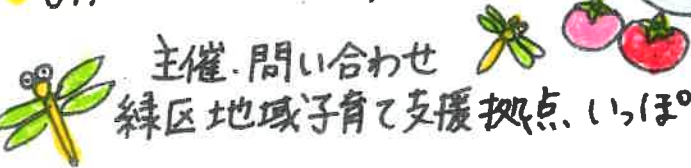 主催・問い合わせ
緑区地域子育て支援拠点、いっぽ